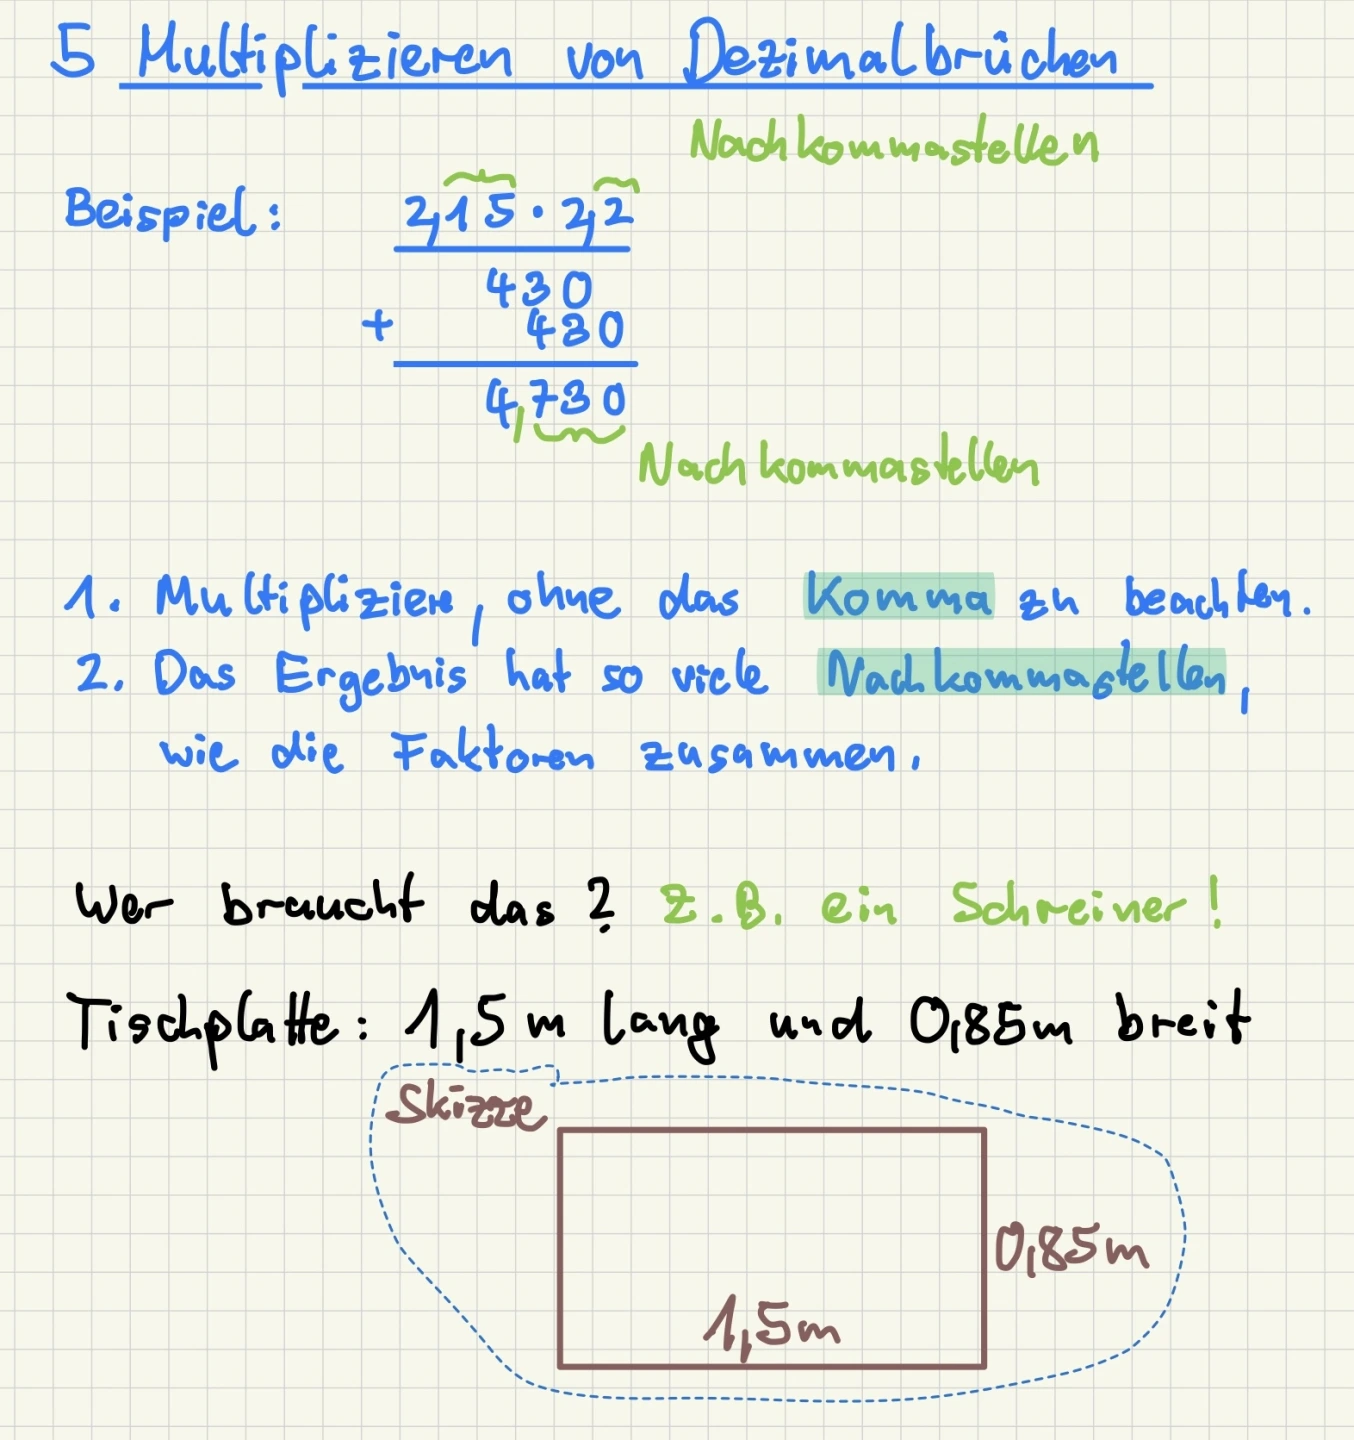 5 Multiplizieren von Dezimalbrüchen
Nachkommastellen
Beispiel: 2,15 · 2,2
430
+ 430
4,730
Nachkommastellen
1. Multipliziere, ohne das Komma zu beachten.
2. Das Ergebnis hat so viele Nachkommastellen,
wie die Faktoren zusammen.
Wer braucht das? Z.B. ein Schreiner!
Tischplatte: 1,5 m lang und 0,85m breit
Skizze
0,85m
1,5m